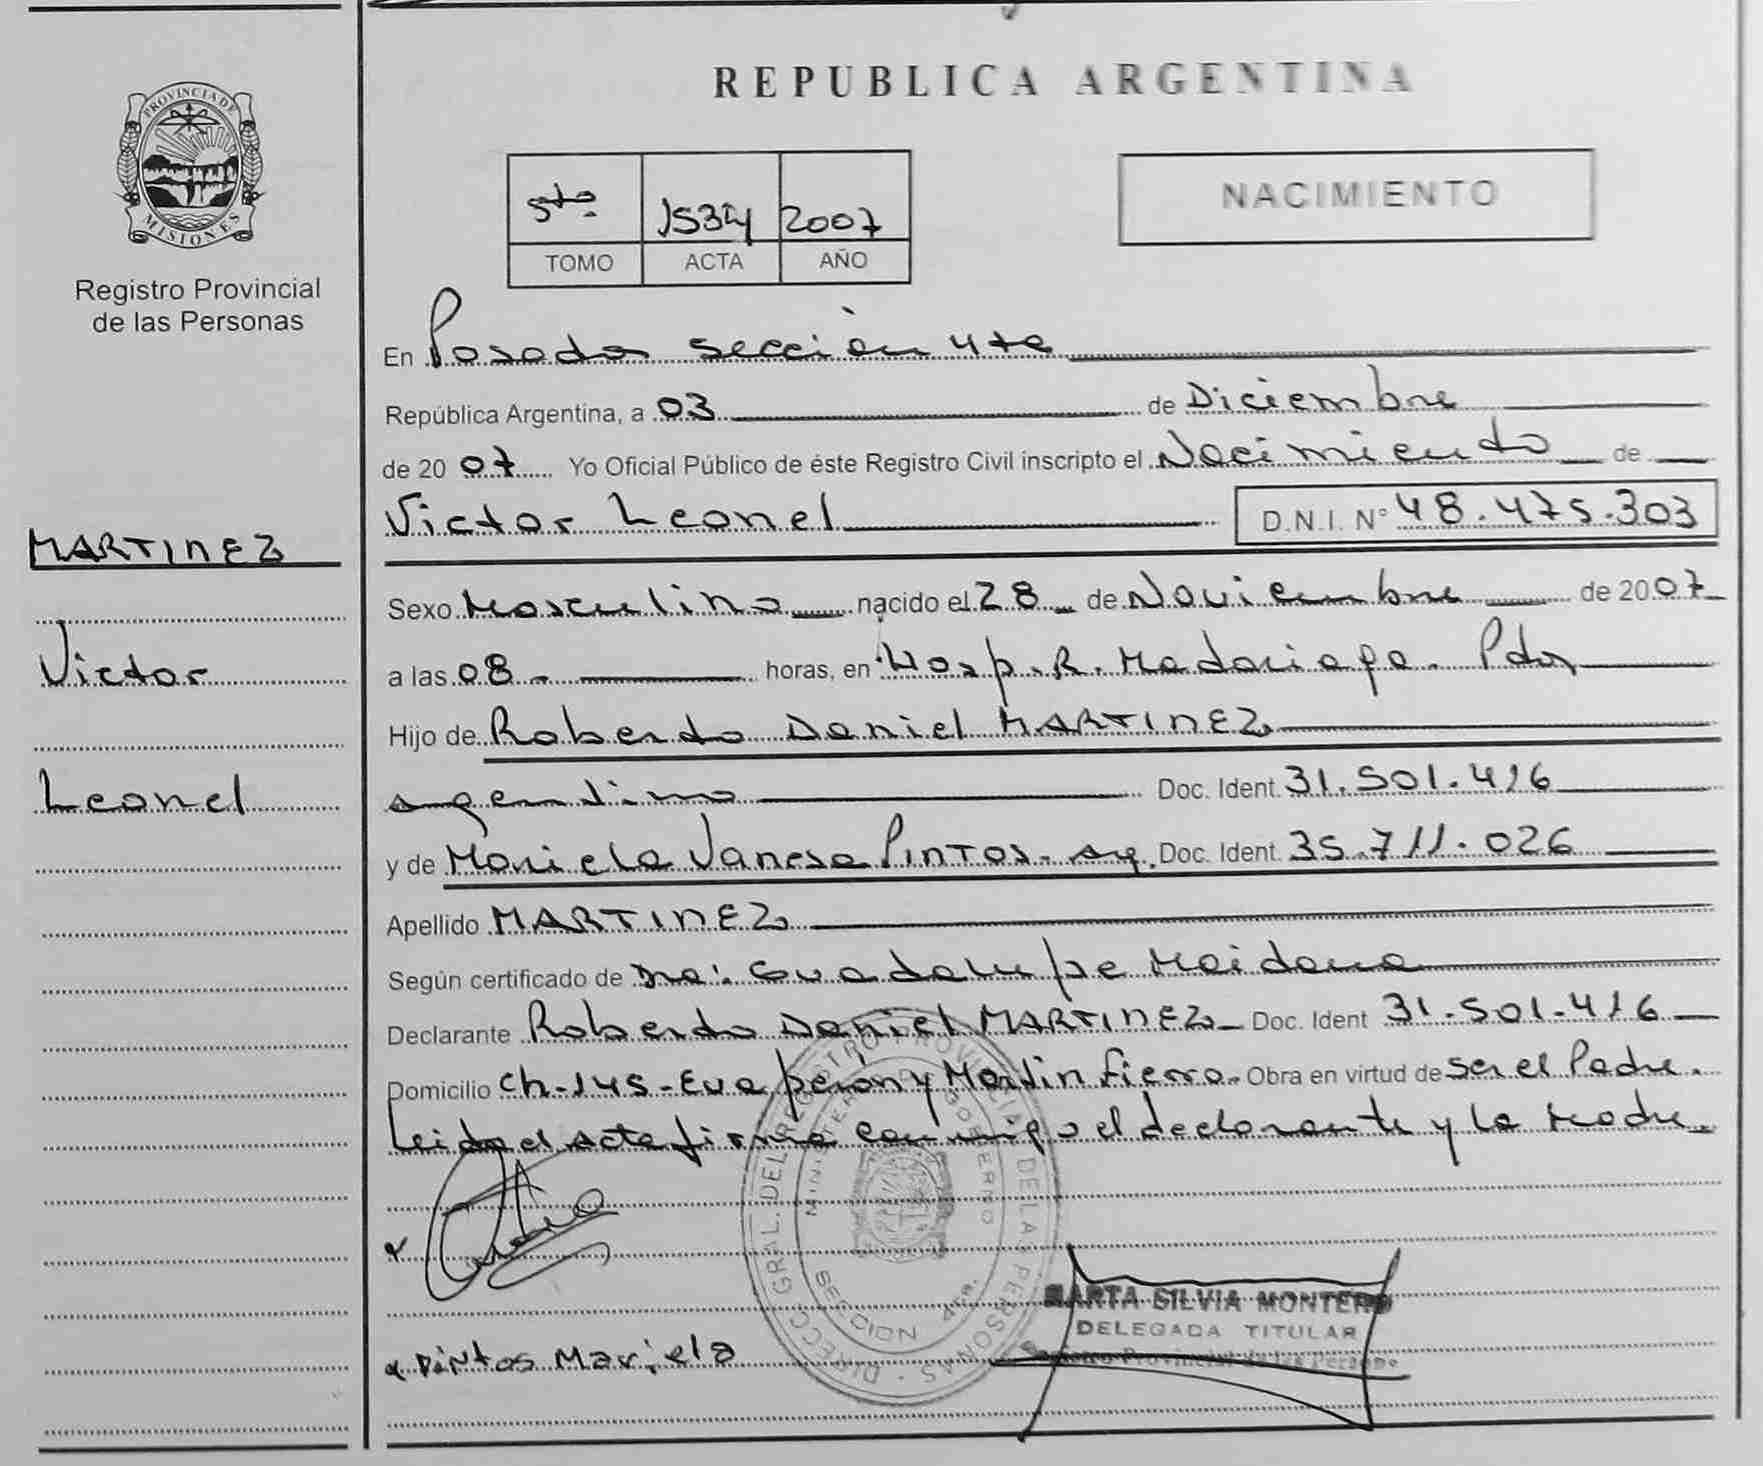 PROVINCIA DE
MISIONES
Registro Provincial
de las Personas
MARTINEZ
Victor
Leonel
REPUBLICA ARGENTINA
5to 1534 2007
TOMO ACTA AÑO
NACIMIENTO
En Posadas sección 4ta
República Argentina, a 03 de Diciembre
de 20 07 Yo Oficial Público de éste Registro Civil inscripto el Nacimiento de
Victor Leonel D.N.I. N° 48.475.303
Sexo Masculino nacido el 28 de Noviembre de 20 07
a las 08 horas, en Hosp. R. Madariaga. Pdas
Hijo de Roberto Daniel MARTINEZ
argentino Doc. Ident. 31.501.416
y de Mariela Vanesa PINTOS - Arg. Doc. Ident. 35.711.026
Apellido MARTINEZ
Según certificado de Dra: Guadalupe Maidana
Declarante Roberto Daniel MARTINEZ Doc. Ident 31.501.416
Domicilio Ch-145-Eva perón y Martin fierro. Obra en virtud de ser el Padre.
Leida el acta firma conmigo el declarante y la Madre.
DIRECC. GRAL. DEL REGISTRO PROVINCIAL DE LAS PERSONAS
MINISTERIO GOBIERNO
SECCION 4ta.
MARTA SILVIA MONTERO
DELEGADA TITULAR
Registro Provincial de las Personas
x Pintos Mariela